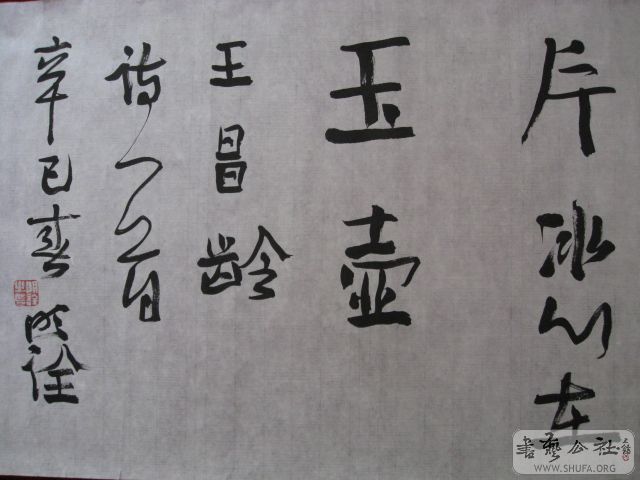 片冰心在
玉壶
王昌龄
诗一首
辛巳春 明诠
书艺公社
WWW.SHUFA.ORG